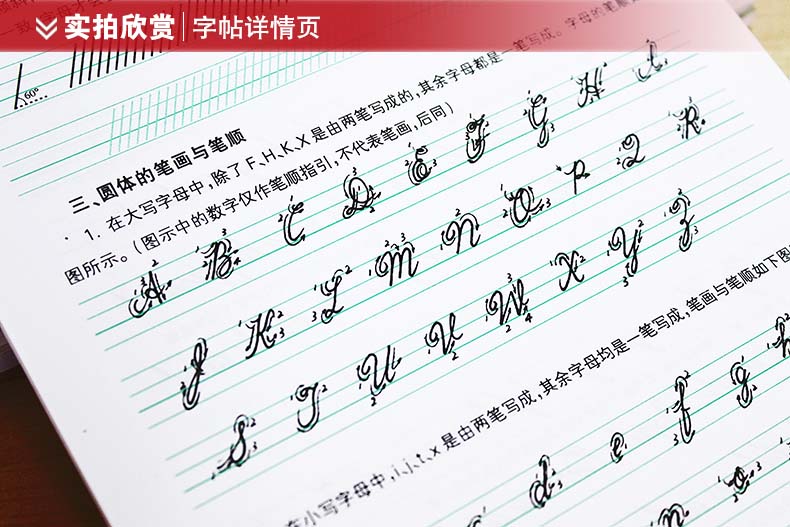 实拍欣赏 字帖详情页
60°
三、圆体的笔画与笔顺
1. 在大写字母中，除了 F、H、K、X 是由两笔写成的，其余字母都是一笔写成。字母的笔顺
图所示。（图示中的数字仅作笔顺指引，不代表笔画，后同）
A B C D E F G H I
J K L M N O P Q R
S T U V W X Y Z
在小写字母中，i、j、t、x 是由两笔写成，其余字母均是一笔写成，笔画与笔顺如下图
d e f g h